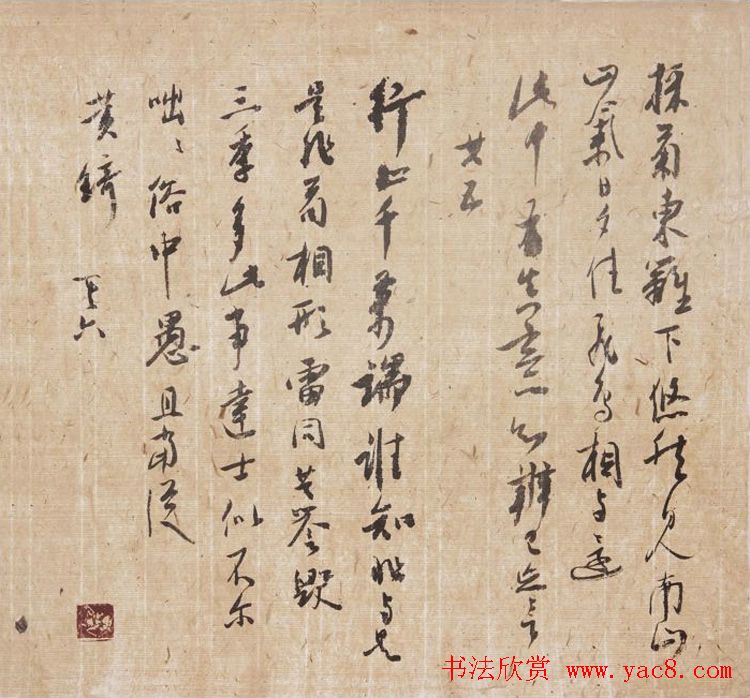 採菊東籬下悠然見南山
山氣日夕佳飛鳥相与還
此中有真意欲辨已忘言
其五
行止千萬端誰知非与是
是非苟相形雷同共譽毀
三季多此事達士似不尔
咄〻俗中愚且當從
黄綺 其六
书法欣赏 www.yac8.com